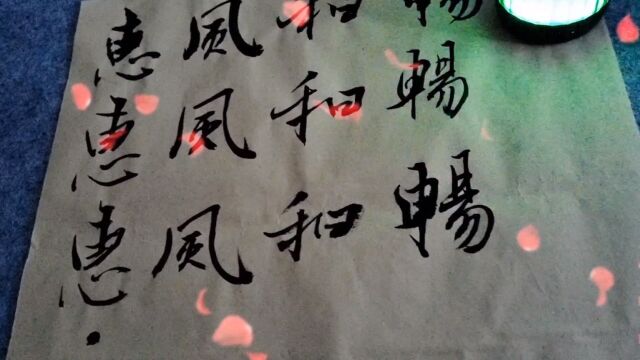 惠風和暢
惠風和暢
惠風和暢